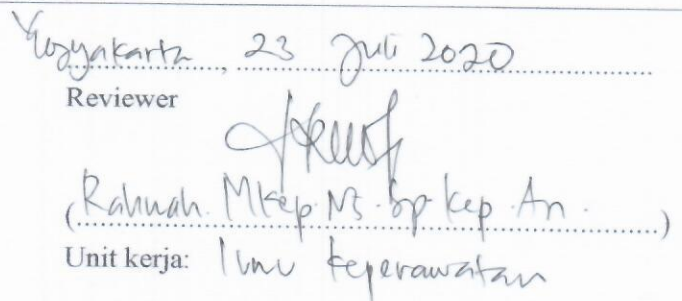 Yogyakarta, 23 Juli 2020
Reviewer
(Rahmah. MKep. Ns. Sp. Kep. An.)
Unit kerja: Ilmu Keperawatan